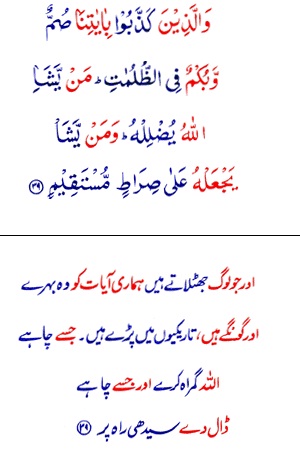 وَالَّذِیْنَ کَذَّبُوْا بِاٰیٰتِنَا صُمٌّ
وَّبُکْمٌ فِی الظُّلُمٰتِ ؕ مَنْ یَّشَاِ
اللّٰہُ یُضْلِلْہُ ؕ وَمَنْ یَّشَاْ
یَجْعَلْہُ عَلٰی صِرَاطٍ مُّسْتَقِیْمٍ ﴿۳۹﴾
اور جو لوگ جھٹلاتے ہیں ہماری آیات کو وہ بہرے
اور گونگے ہیں، تاریکیوں میں پڑے ہیں۔ جسے چاہے
اللہ گمراہ کرے اور جسے چاہے
ڈال دے سیدھی راہ پر ﴿۳۹﴾